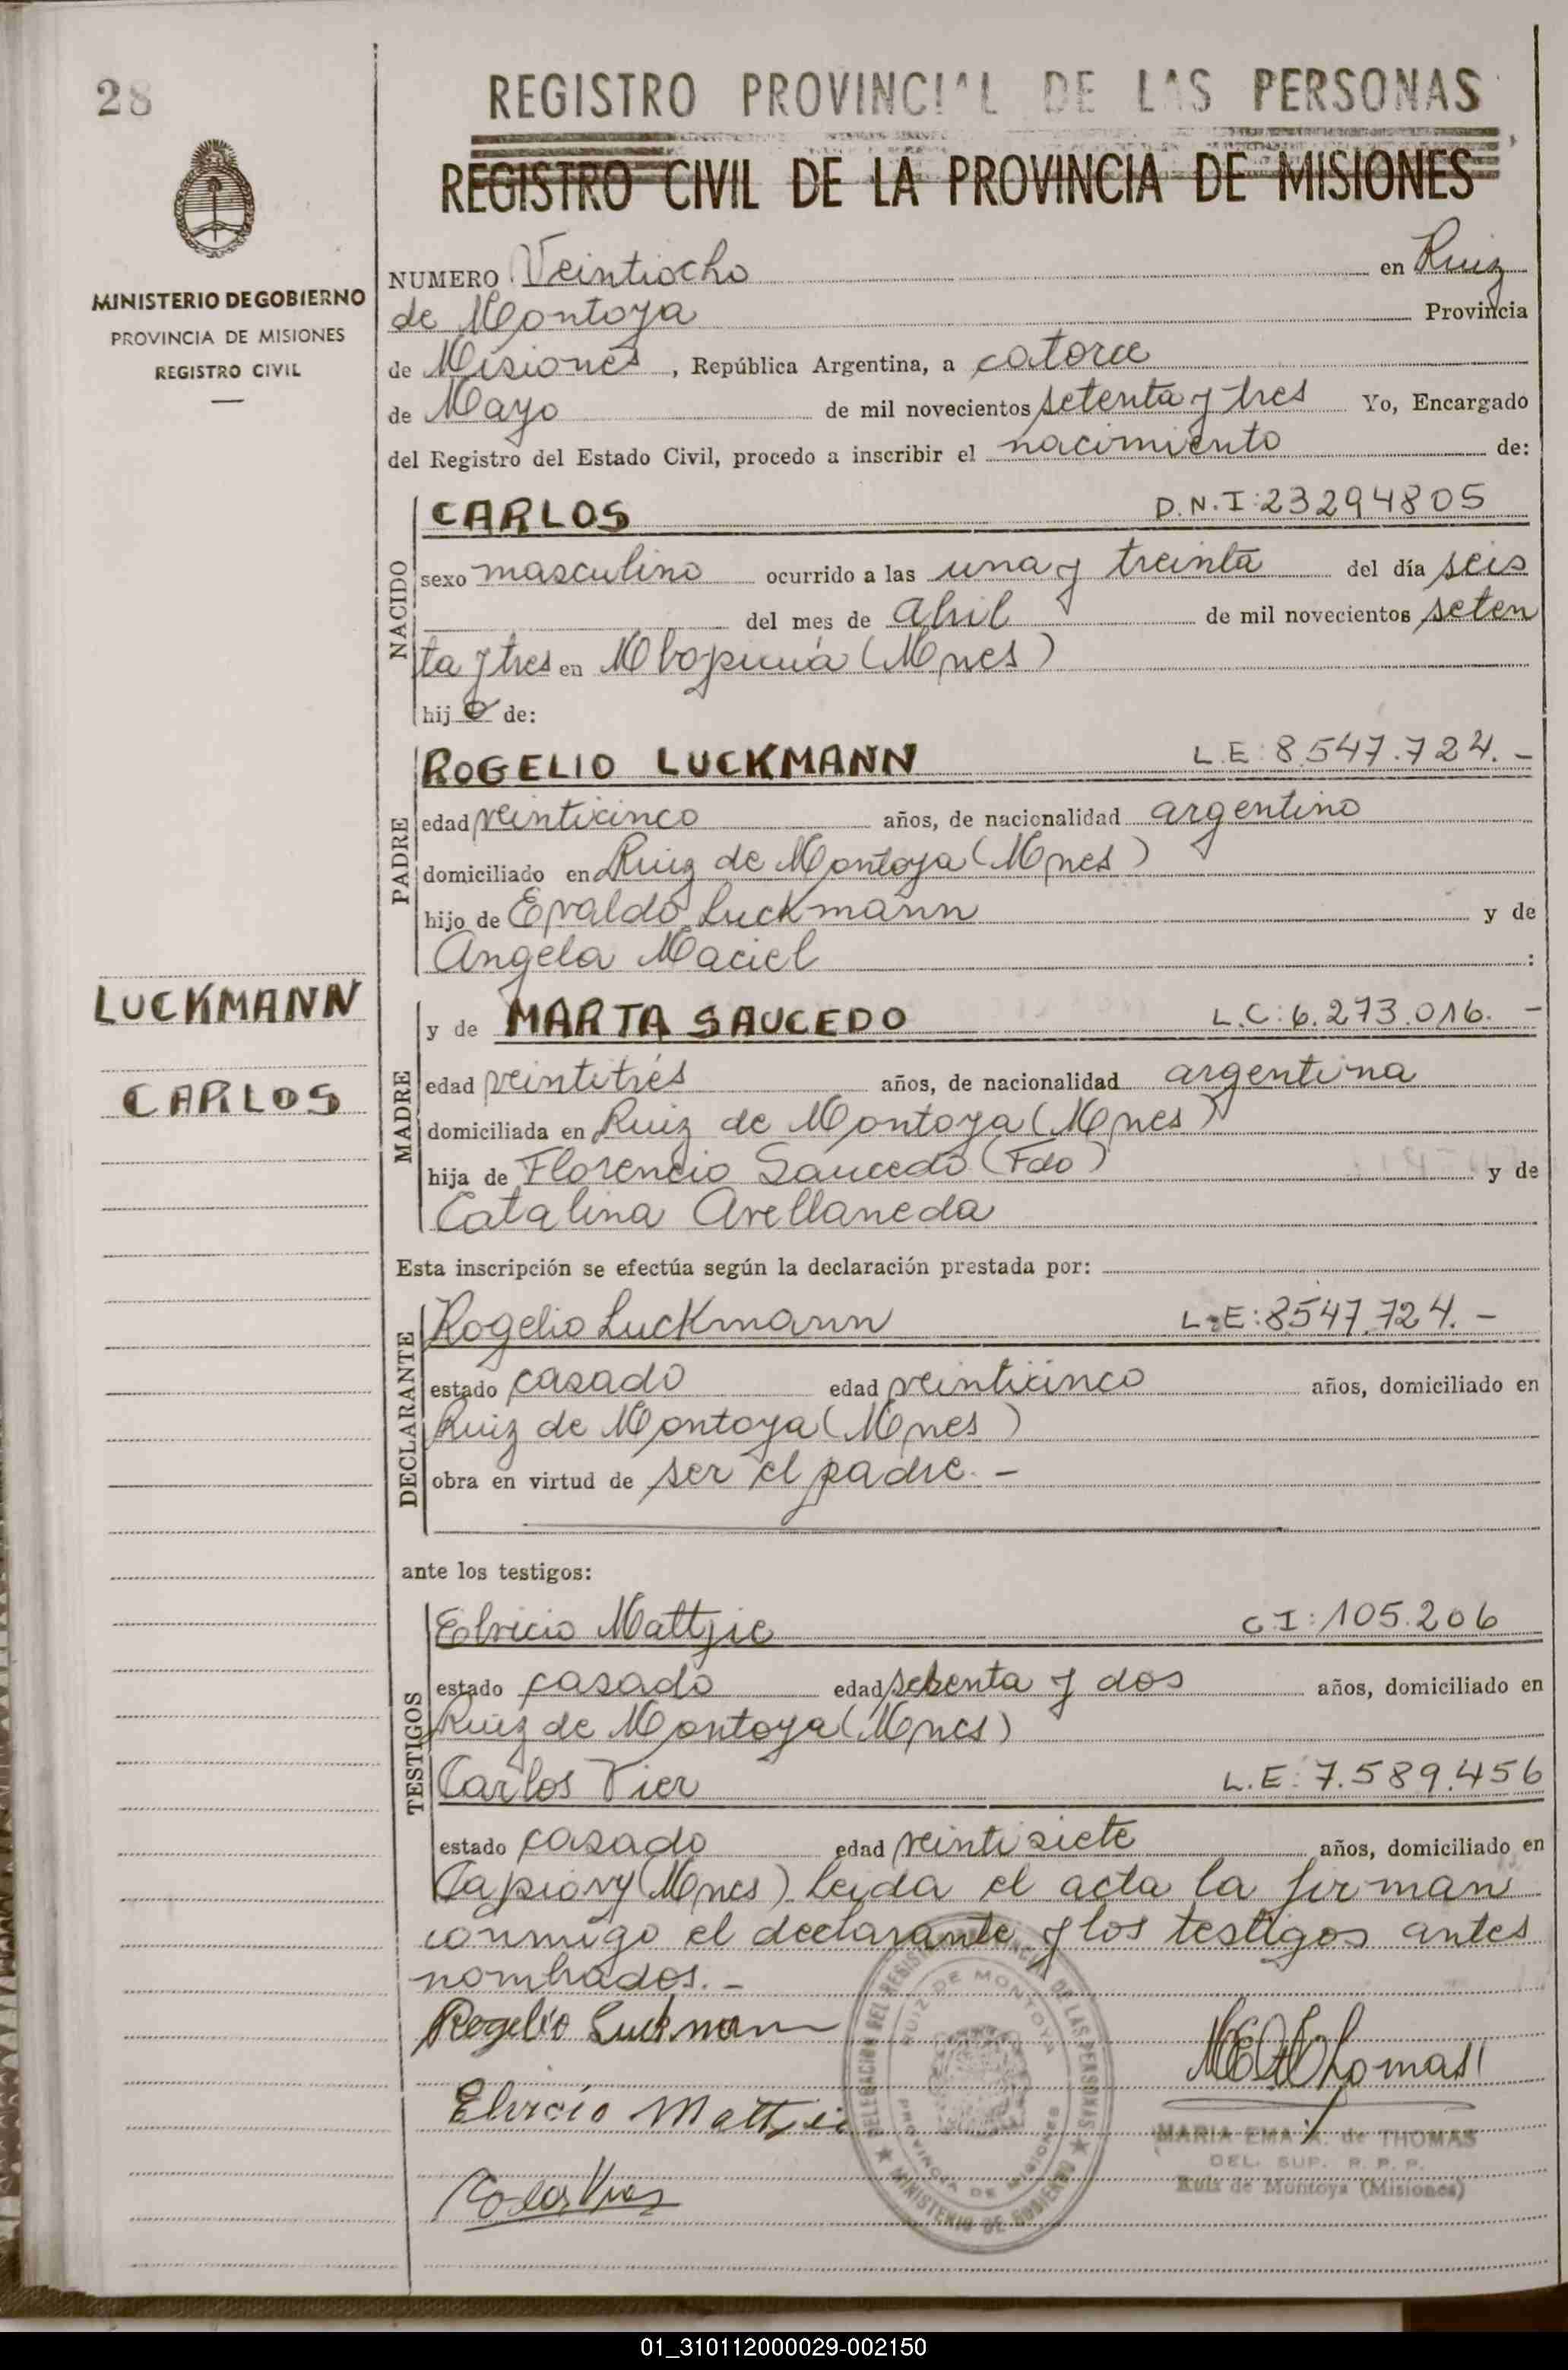 28
REGISTRO PROVINCIAL DE LAS PERSONAS
REGISTRO CIVIL DE LA PROVINCIA DE MISIONES
MINISTERIO DE GOBIERNO
PROVINCIA DE MISIONES
REGISTRO CIVIL
NUMERO Veintiocho en Ruiz
de Montoya Provincia
de Misiones, República Argentina, a catorce
de Mayo de mil novecientos setenta y tres Yo, Encargado
del Registro del Estado Civil, procedo a inscribir el nacimiento de:
NACIDO
CARLOS D.N.I:23294805
sexo masculino ocurrido a las una y treinta del día seis
del mes de Abril de mil novecientos seten
ta y tres en (Mnes)
hijo de:
PADRE
ROGELIO LUCKMANN L.E:8.547.724.-
edad veinticinco años, de nacionalidad argentino
domiciliado en Ruiz de Montoya (Mnes)
hijo de Evaldo Luckmann y de
Angela Maciel :
LUCKMANN
CARLOS
MADRE
y de MARTA SAUCEDO L.C:6.273.016.-
edad veintitrés años, de nacionalidad argentina
domiciliada en Ruiz de Montoya (Mnes)
hija de Florencio Saucedo (Fdo) y de
Catalina Avellaneda
Esta inscripción se efectúa según la declaración prestada por:
DECLARANTE
Rogelio Luckmann L.E:8.547.724.-
estado casado edad veinticinco años, domiciliado en
Ruiz de Montoya (Mnes)
obra en virtud de ser el padre.-
ante los testigos:
TESTIGOS
Elvicio Mattjie C.I:105.206
estado casado edad y dos años, domiciliado en
Ruiz de Montoya (Mnes)
Carlos Vier L.E:7.589.456
estado casado edad veintisiete años, domiciliado en
Capiovy (Mnes) leida el acta la firman
conmigo el declarante y los testigos antes
nombrados.-
Rogelio Luckmann
Elvicio Mattjie
DELEGACION DEL REGISTRO PROVINCIAL DE LAS PERSONAS
RUIZ DE MONTOYA
PROVINCIA DE MISIONES
MINISTERIO DE GOBIERNO
MARIA EMA A. de THOMAS
DEL. SUP. R. P. P.
Ruiz de Montoya (Misiones)
01_310112000029-002150